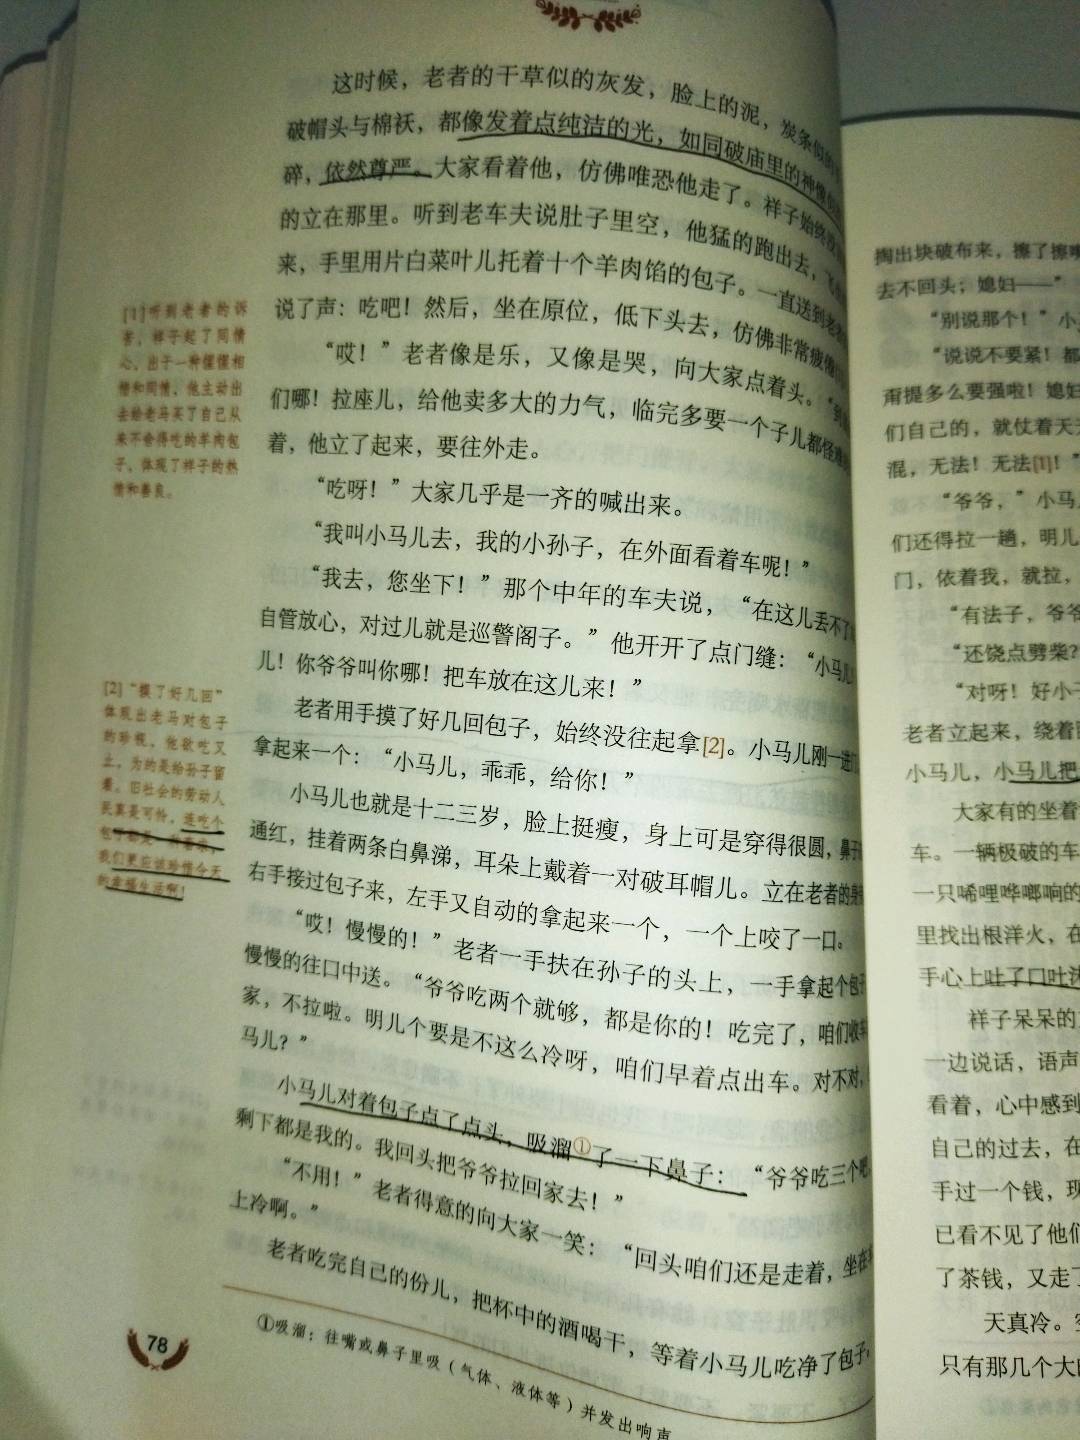 这时候，老者的干草似的灰发，脸上的泥，炭条似的
破帽头与棉袄，都像发着点纯洁的光，如同破庙里的神像
碎，依然尊严。大家看着他，仿佛唯恐他走了。祥子始终
的立在那里。听到老车夫说肚子里空，他猛的跑出去，飞
来，手里用片白菜叶儿托着十个羊肉馅的包子。一直送到老
说了声：吃吧！然后，坐在原位，低下头去，仿佛非常疲倦
“哎！”老者像是乐，又像是哭，向大家点着头。“到
们哪！拉座儿，给他卖多大的力气，临完多要一个子儿都怪难
着，他立了起来，要往外走。
“吃呀！”大家几乎是一齐的喊出来。
“我叫小马儿去，我的小孙子，在外面看着车呢！”
“我去，您坐下！”那个中年的车夫说，“在这儿丢不了
自管放心，对过儿就是巡警阁子。”他开开了点门缝：“小马儿
儿！你爷爷叫你哪！把车放在这儿来！”
老者用手摸了好几回包子，始终没往起拿[2]。小马儿刚一进门
拿起来一个：“小马儿，乖乖，给你！”
小马儿也就是十二三岁，脸上挺瘦，身上可是穿得很圆，鼻子
通红，挂着两条白鼻涕，耳朵上戴着一对破耳帽儿。立在老者的身
右手接过包子来，左手又自动的拿起来一个，一个上咬了一口。
“哎！慢慢的！”老者一手扶在孙子的头上，一手拿起个包子
慢慢的往口中送。“爷爷吃两个就够，都是你的！吃完了，咱们收车
家，不拉啦。明儿个要是不这么冷呀，咱们早着点出车。对不对，
马儿？”
小马儿对着包子点了点头，吸溜①了一下鼻子：“爷爷吃三个吧
剩下都是我的。我回头把爷爷拉回家去！”
“不用！”老者得意的向大家一笑：“回头咱们还是走着，坐在
上冷啊。”
老者吃完自己的份儿，把杯中的酒喝干，等着小马儿吃净了包子
①吸溜：往嘴或鼻子里吸（气体、液体等）并发出响声
78
[1]听到老者的诉
者，祥子起了同情
心，出于一种惺惺相
惜和同情，他主动出
去给老马买了自己从
来不舍得吃的羊肉包
子，体现了祥子的热
情和善良。
[2]“摸了好几回”
体现出老马对包子
的珍视，他欲吃又
止，为的是给孙子留
着。旧社会的劳动人
民真是可怜，连吃个
包子都是
我们更应该珍惜今天
的幸福生活啊！
掏出块破布来，擦了擦
去不回头；媳妇——”
“别说那个！”小
“说说不要紧！都
甭提多么要强啦！媳妇
们自己的，就仗着天天
混，无法！无法[1]！”
“爷爷，”小马
们还得拉一趟，明儿
门，依着我，就拉，
“有法子，爷爷
“还饶点劈柴？
“对呀！好小子
老者立起来，绕着
小马儿，小马儿把
大家有的坐着
车。一辆极破的车
一只唏哩哗啷响的
里找出根洋火，在
手心上吐了口吐沫
祥子呆呆的
一边说话，语声
看着，心中感到
自己的过去，在
手过一个钱，现
已看不见了他们
了茶钱，又走了
天真冷。空
只有那几个大